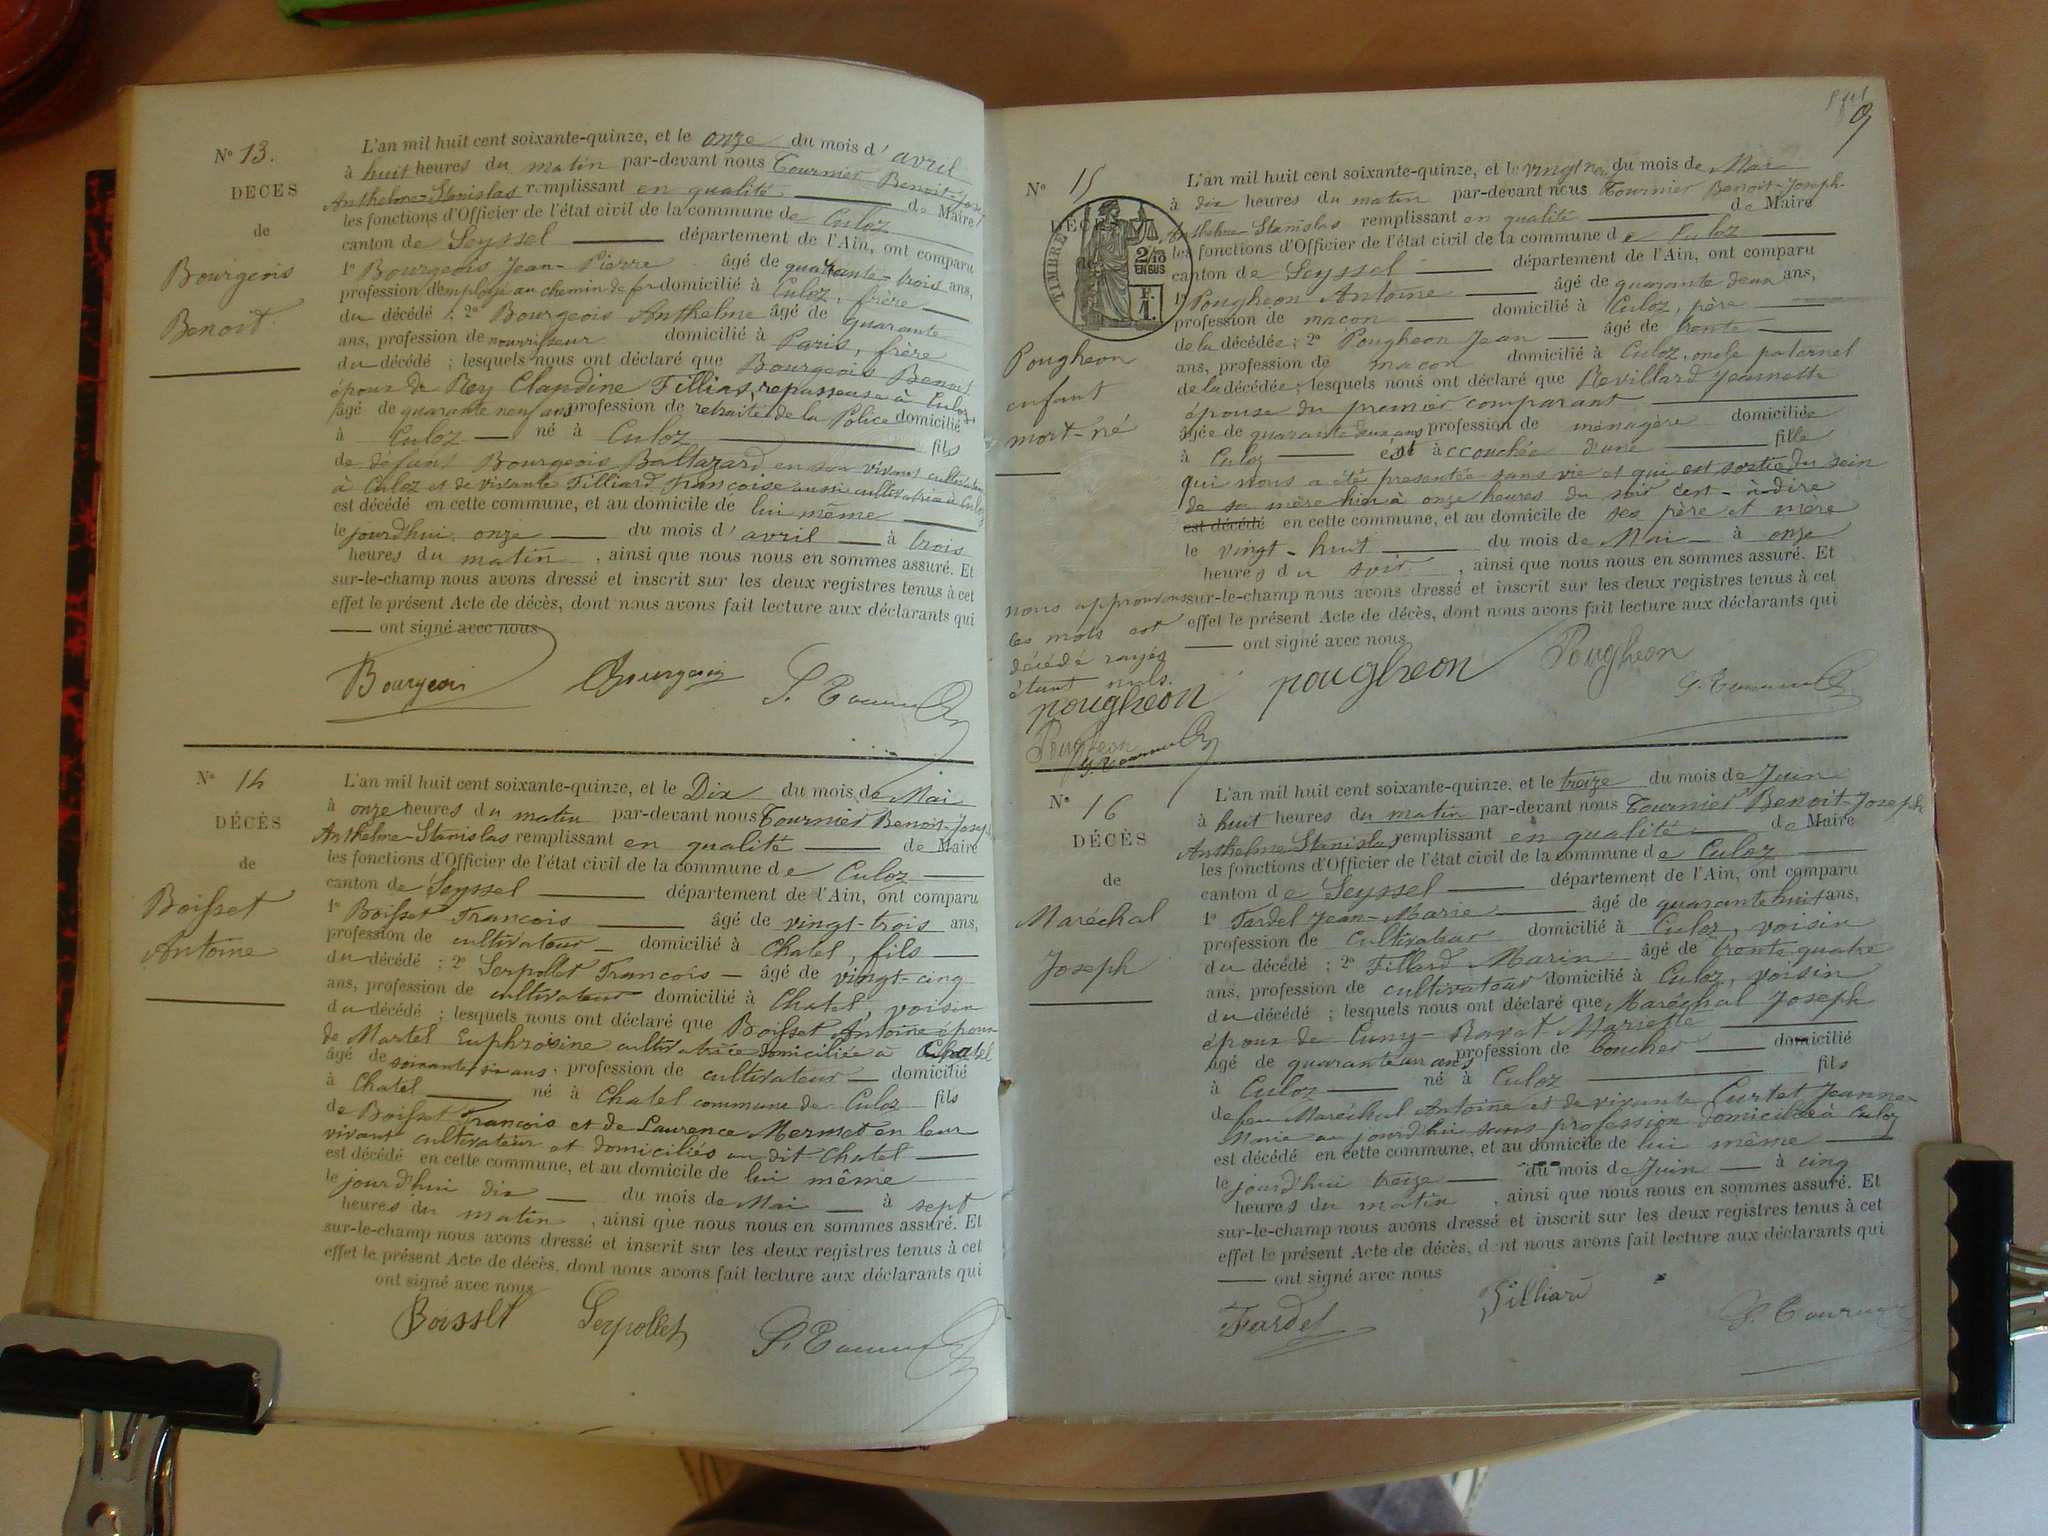 N° 13.
DÉCÈS
de
Bourgeois
Benoit.
L'an mil huit cent soixante-quinze, et le onze du mois d'avril
à huit heures du matin par-devant nous Tournier Benoit-Joseph
Anthelme-Stanislas remplissant en qualité de Maire
les fonctions d'Officier de l'état civil de la commune de Culoz
canton de Seyssel département de l'Ain, ont comparu
1° Bourgeois Jean-Pierre âgé de quarante-trois ans,
profession d'employé au chemin de fer domicilié à Culoz, frère
du décédé ; 2° Bourgeois Anthelme âgé de quarante
ans, profession de nourrisseur domicilié à Paris, frère
du décédé ; lesquels nous ont déclaré que Bourgeois Benoit
époux de Rey Claudine Fillias, repasseuse à Culoz
âgé de quarante neuf ans profession de retraité de la Police domicilié
à Culoz né à Culoz fils
de défunt Bourgeois Baltazard en son vivant cultivateur
à Culoz et de vivante Filliard Françoise aussi cultivatrice à Culoz
est décédé en cette commune, et au domicile de lui même
le jourd'hui onze du mois d'avril à trois
heures du matin, ainsi que nous nous en sommes assuré. Et
sur-le-champ nous avons dressé et inscrit sur les deux registres tenus à cet
effet le présent Acte de décès, dont nous avons fait lecture aux déclarants qui
ont signé avec nous
Bourgeois Bourgeois
N° 14
DÉCÈS
de
Boisset
Antoine
L'an mil huit cent soixante-quinze, et le Dix du mois de Mai
à onze heures du matin par-devant nous Tournier Benoit-Joseph
Anthelme-Stanislas remplissant en qualité de Maire
les fonctions d'Officier de l'état civil de la commune de Culoz
canton de Seyssel département de l'Ain, ont comparu
1° Boisset François âgé de vingt-trois ans,
profession de cultivateur domicilié à Chatel, fils
du décédé ; 2° Serpollet François âgé de vingt-cinq
ans, profession de cultivateur domicilié à Chatel, voisin
du décédé ; lesquels nous ont déclaré que Boisset Antoine époux
de Martel Euphrosine cultivatrice domiciliée à Chatel
âgé de soixante six ans, profession de cultivateur domicilié
à Chatel né à Chatel commune de Culoz fils
de Boisset François et de Laurence Mermet en leur
vivant cultivateur et domiciliés au dit Chatel
est décédé en cette commune, et au domicile de lui même
le jourd'hui dix du mois de Mai à sept
heures du matin, ainsi que nous nous en sommes assuré. Et
sur-le-champ nous avons dressé et inscrit sur les deux registres tenus à cet
effet le présent Acte de décès, dont nous avons fait lecture aux déclarants qui
ont signé avec nous
Boisset Serpollet
9
N° 15
DÉC
TIMBRE
2/10
EN SUS
F.
1.
Pougheon
enfant
mort-né
L'an mil huit cent soixante-quinze, et le vingt neuf du mois de Mai
à dix heures du matin par-devant nous Tournier Benoit-Joseph-
Anthelme-Stanislas remplissant en qualité de Maire
les fonctions d'Officier de l'état civil de la commune de Culoz
canton de Seyssel département de l'Ain, ont comparu
1° Pougheon Antoine âgé de quarante deux ans,
profession de maçon domicilié à Culoz, père
de la décédée ; 2° Pougheon Jean âgé de trente
ans, profession de maçon domicilié à Culoz, oncle paternel
de la décédée ; lesquels nous ont déclaré que Revillard Jeannette
épouse du premier comparant
âgée de quarante deux ans profession de ménagère domiciliée
à Culoz est accouchée d'une fille
qui nous a été presentée sans vie et qui est sortie du sein
de sa mère hier à onze heures du soir c'est-à-dire
est décédé en cette commune, et au domicile de ses père et mère
le vingt-huit du mois de Mai à onze
heures du soir, ainsi que nous nous en sommes assuré. Et
sur-le-champ nous avons dressé et inscrit sur les deux registres tenus à cet
effet le présent Acte de décès, dont nous avons fait lecture aux déclarants qui
ont signé avec nous
nous approuvons
les mots est
décédé rayés
étant nuls.
pougheon
Pougheon
pougheon Pougheon
N° 16
DÉCÈS
de
Maréchal
Joseph
L'an mil huit cent soixante-quinze, et le treize du mois de Juin
à huit heures du matin par-devant nous Tournier Benoit-Joseph
Anthelme Stanislas remplissant en qualité de Maire
les fonctions d'Officier de l'état civil de la commune de Culoz
canton de Seyssel département de l'Ain, ont comparu
1° Fardel Jean-Marie âgé de quarante huit ans,
profession de Cultivateur domicilié à Culoz, voisin
du décédé ; 2° Filliard Marin âgé de trente-quatre
ans, profession de cultivateur domicilié à Culoz, voisin
du décédé ; lesquels nous ont déclaré que Maréchal Joseph
époux de Cuny-Ravat Mariette
âgé de quarante un ans profession de boucher domicilié
à Culoz né à Culoz fils
de feu Maréchal Antoine et de vivante Curtet Jeanne-
Marie aujourd'hui sans profession domiciliée à Culoz
est décédé en cette commune, et au domicile de lui même
le jourd'hui treize du mois de Juin à cinq
heures du matin, ainsi que nous nous en sommes assuré. Et
sur-le-champ nous avons dressé et inscrit sur les deux registres tenus à cet
effet le présent Acte de décès, dont nous avons fait lecture aux déclarants qui
ont signé avec nous
Fardel Filliard